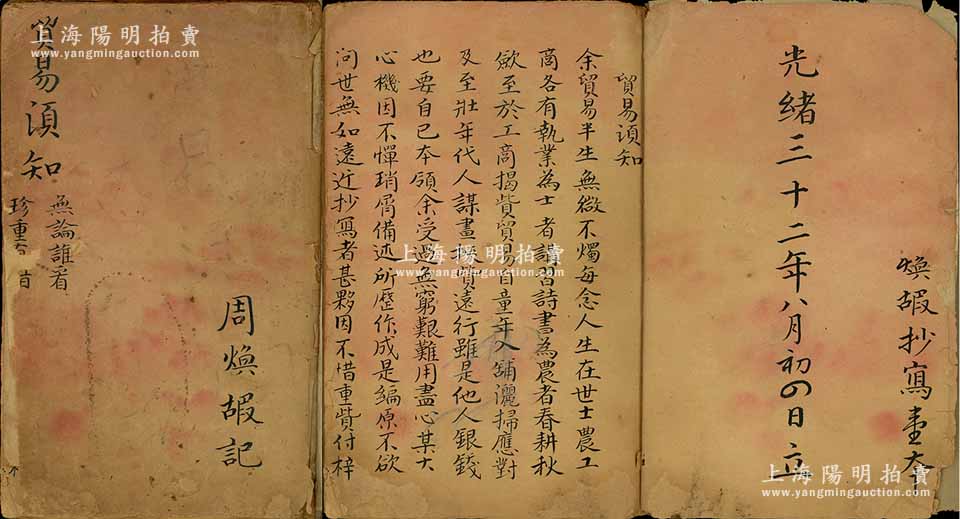 光緒三十二年八月初四日立
煥嘏抄寫壹本
貿易須知
余貿易半生無微不燭每念人生在世士農工
商各有執業為士者誦習詩書為農者春耕秋
歛至於工商揭貲貿易自童年入舖灑掃應對
及至壯年代人謀畫携貲遠行雖是他人銀錢
也要自己本領余受過無窮艱難用盡心某大
心機因不憚瑣屑備述所歷作成是編原不欲
问世無如遠近抄寫者甚夥因不惜重貲付梓
貿易須知
無論誰看
珍重
周煥嘏記
上海陽明拍賣
www.yangmingauction.com
上海陽明拍賣
www.yangmingauction.com
上海陽明拍賣
www.yangmingauction.com